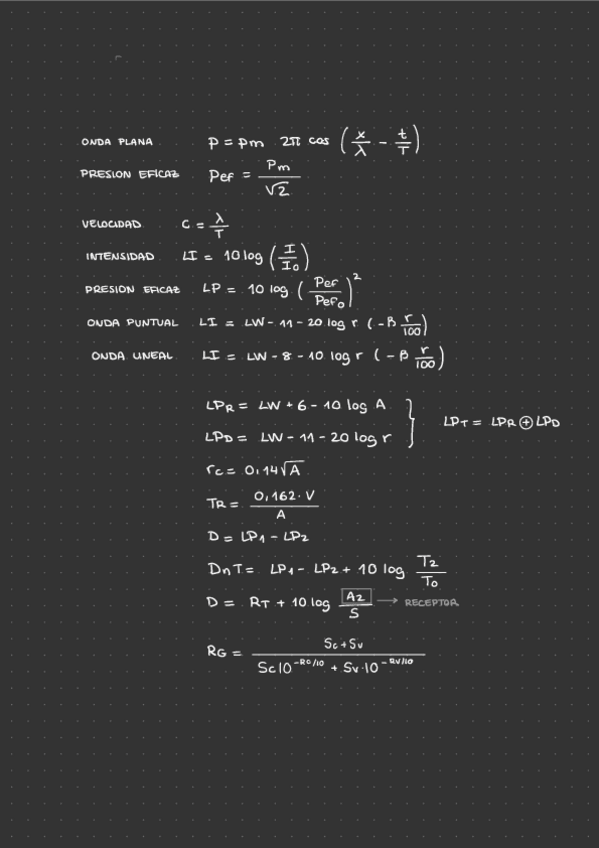 ONDA PLANA p = pm 2π cos (x/λ - t/T)
PRESION EFICAZ Pef = Pm/√2
VELOCIDAD C = λ/T
INTENSIDAD LI = 10 log (I/I₀)
PRESION EFICAZ LP = 10 log (Pef/Pef₀)²
ONDA PUNTUAL LI = LW - 11 - 20 log r (-β r/100)
ONDA LINEAL LI = LW - 8 - 10 log r (-β r/100)
LPR = LW + 6 - 10 log A
LPD = LW - 11 - 20 log r } LPT = LPR ⊕ LPD
rc = 0,14√A
TR = 0,162·V/A
D = LP1 - LP2
DnT = LP1 - LP2 + 10 log T2/T₀
D = RT + 10 log A2/S → RECEPTOR
RG = (Sc + Sv)/(Sc10^(-Rc/10) + Sv·10^(-Rv/10))